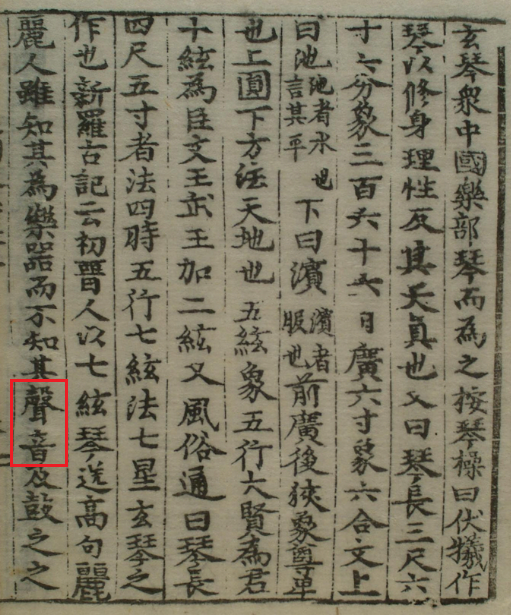 玄琴衆中國樂部琴而為之按琴操曰伏犧作
琴以修身理性反其天真也又曰琴長三尺六
寸六分象三百六十六日廣六寸象六合文上
曰池池者水也言其平下曰濱濱者服也前廣後狹象尊卑
也上圓下方法天地也五絃象五行大賢為君
十絃為臣文王武王加二絃又風俗通曰琴長
四尺五寸者法四時五行七絃法七星玄琴之
作也新羅古記云初晋人以七絃琴送高句麗
麗人雖知其為樂器而不知其聲音及鼓之之